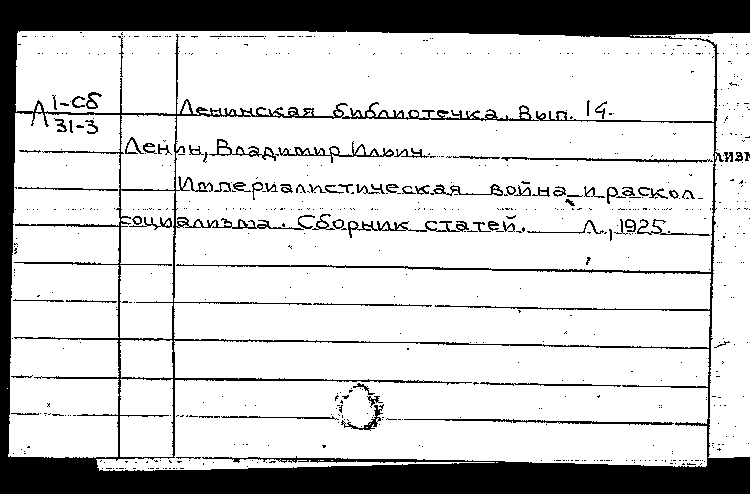 Л 1-Сб
31-3
Ленинская библиотечка. Вып. 14.
Ленин, Владимир Ильич.
Империалистическая война и раскол
социализма. Сборник статей. Л., 1925.
лизм